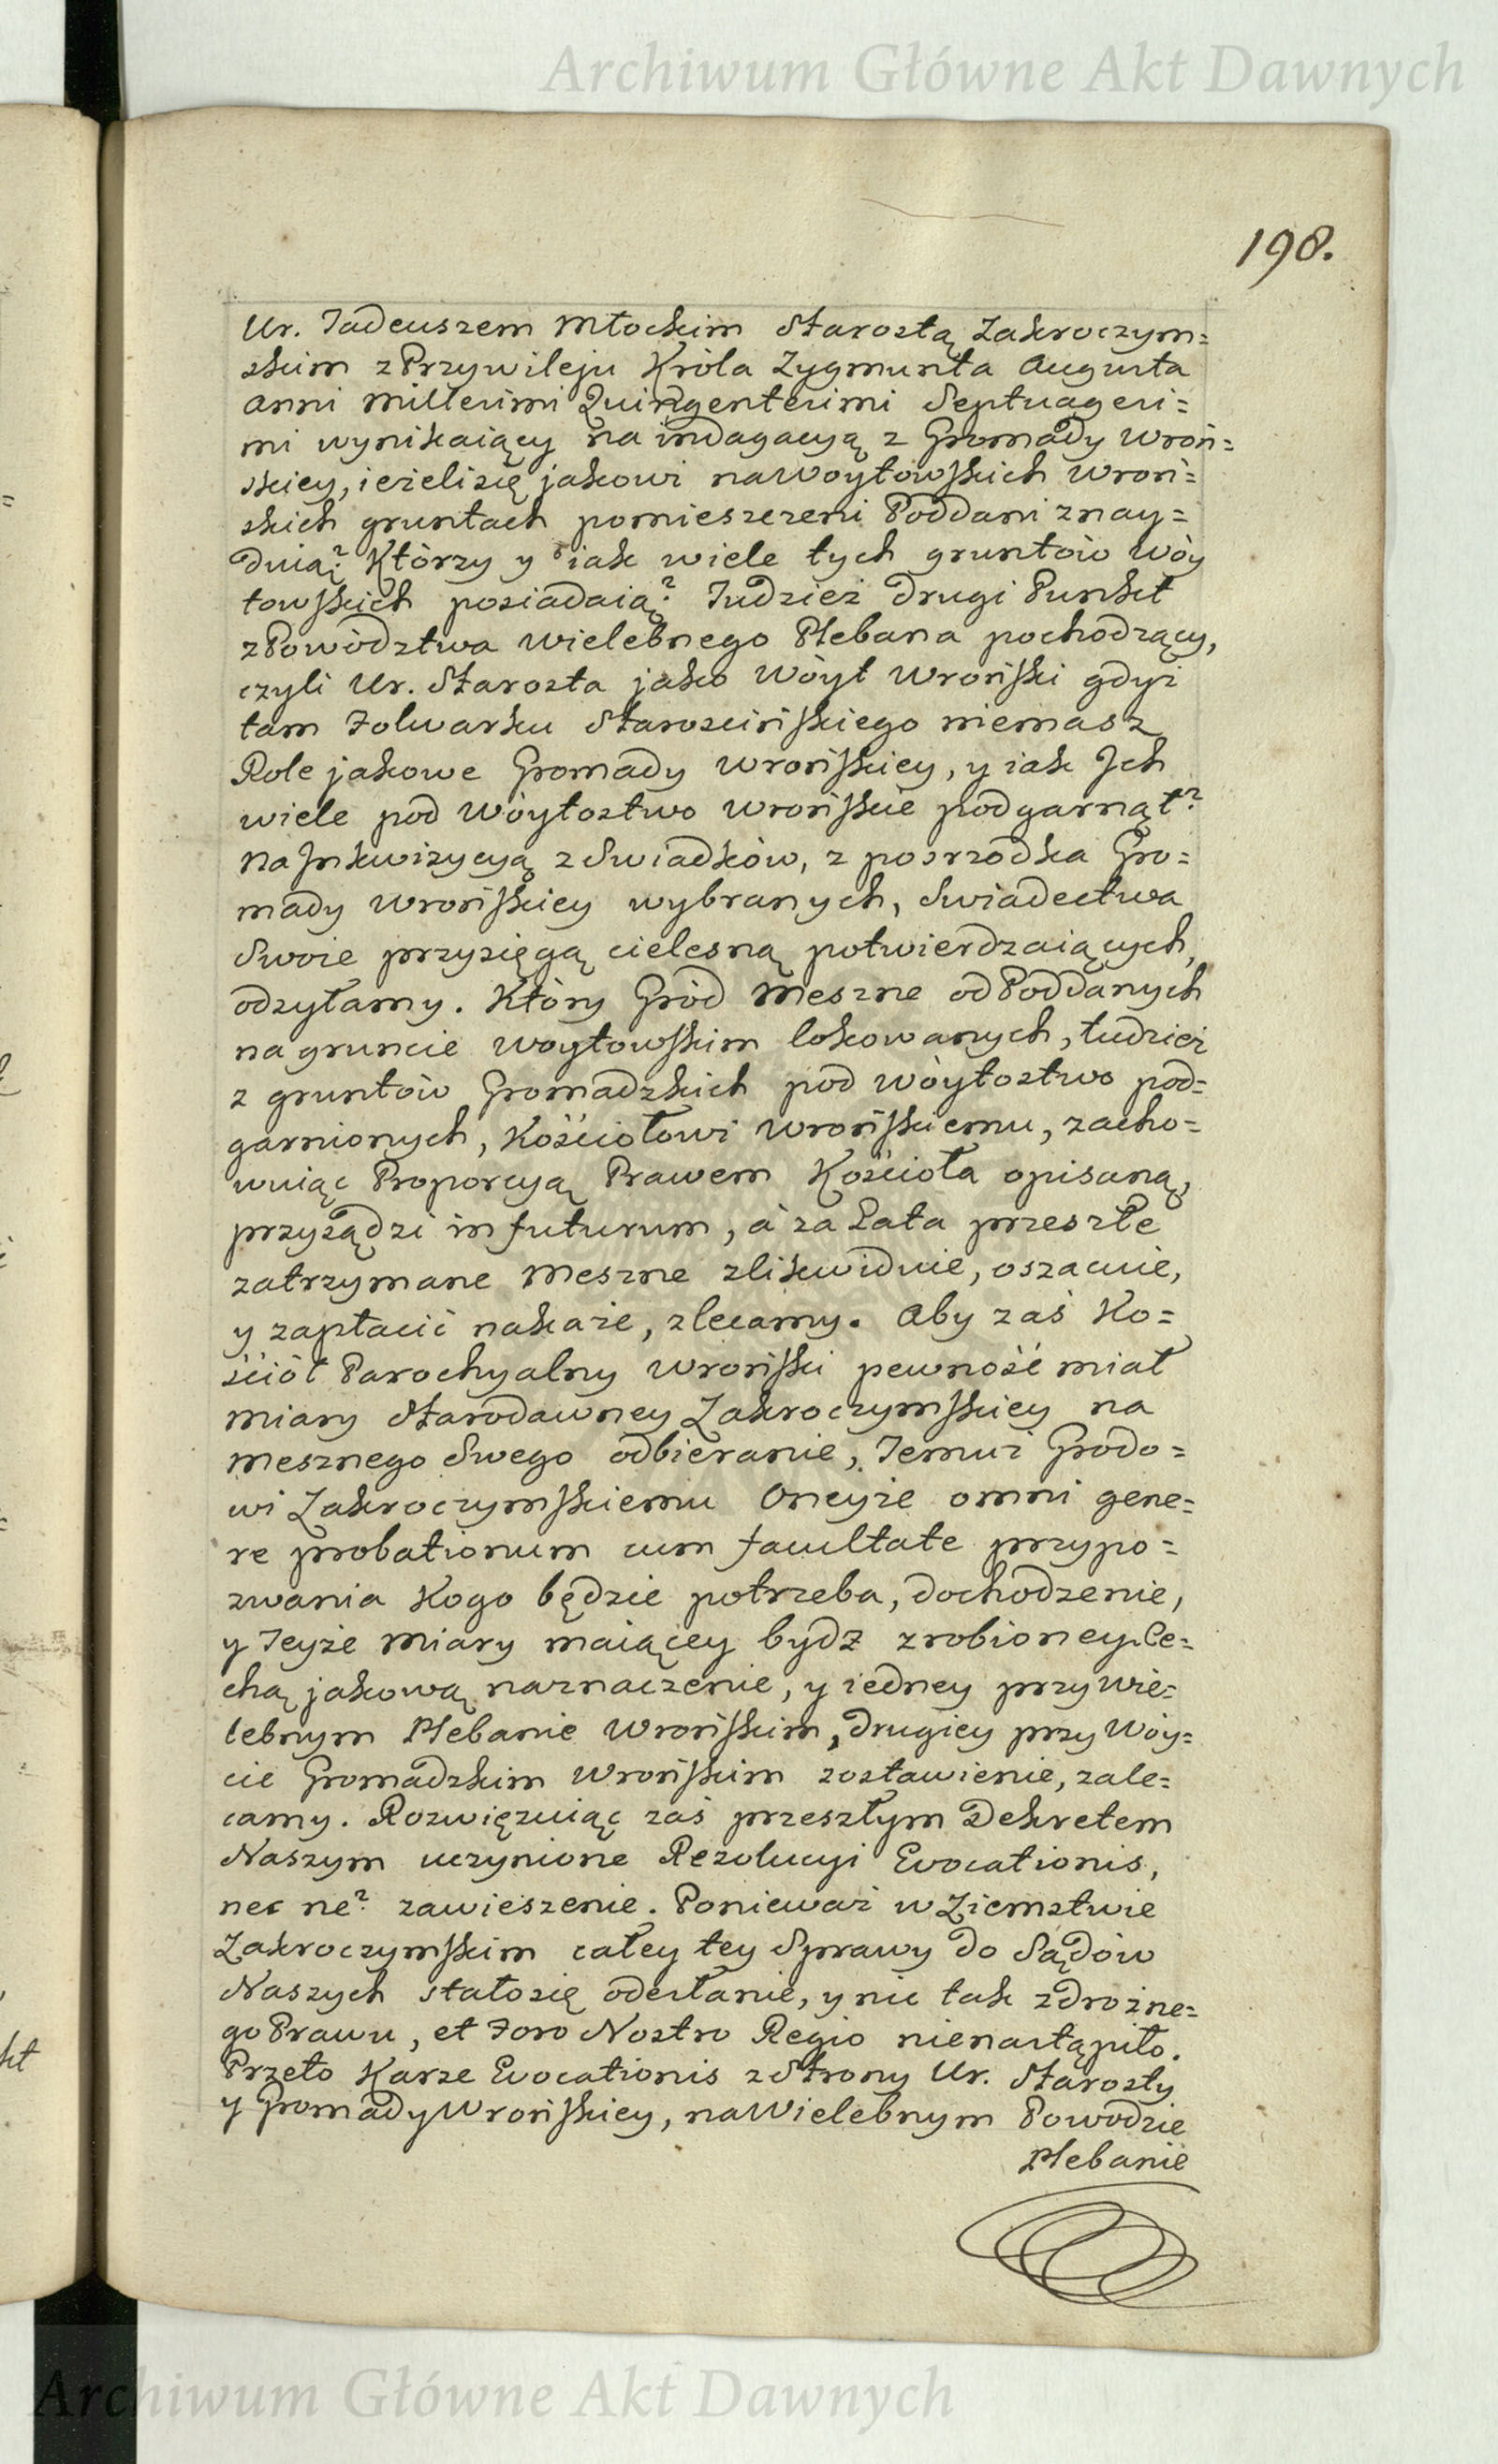 Archiwum Główne Akt Dawnych
198.
Ur. Tadeuszem Młockim Starostą Zakroczym=
skim z Przywileju Króla Zygmunta Augusta
Anni Millesimi Quingentesimi Septuagesi=
mi wynikaiący na indagacyą z Gromady Wroń=
skiey, ieżeli się jakowi na Woytowskich Wroń=
skich gruntach pomieszczeni Poddani znay=
duią? Którzy y iak wiele tych gruntów Wóy
towskich posiadaią? Tudzież drugi Punkt
z Powództwa Wielebnego Plebana pochodzący,
czyli Ur. Starosta jako Wóyt Wroński gdyż
tam Folwarku Starościńskiego niemasz
Role jakowe Gromady Wrońskiey, y iak Ich
wiele pod Wóytostwo Wrońskie podgarnął?
na Inkwizycyą z Swiadków, z posrzodka Gro=
mady Wrońskiey wybranych, Swiadectwa
Swoie przysięgą cielesną potwierdzaiących,
odsyłamy. Który Gród Meszne od Poddanych
na gruncie Woytowskim lokowanych, tudzież
z gruntów Gromadzkich pod Wóytostwo pod=
garnionych, Kościołowi Wrońskiemu, zacho=
wuiąc Proporcyą Prawem Kościoła opisaną,
przysądzi in futurum, á za Lata przeszłe
zatrzymane Meszne zlikwiduie, oszacuie,
y zapłacić nakaże, zlecamy. Aby zaś Ko=
ściół Parochyalny Wroński pewność miał
miary Starodawney Zakroczymskiey na
mesznego Swego odbieranie, Temuż Grodo=
wi Zakroczymskiemu Oneyże omni gene=
re probationum cum facultate przypo=
zwania Kogo będzie potrzeba, dochodzenie,
y Teyże Miary maiącey bydz zrobioney Ce=
chą jakową naznaczenie, y iedney przy Wie=
lebnym Plebanie Wrońskim, drugiey przy Wóy=
cie Gromadzkim Wrońskim zostawienie, zale=
camy. Rozwięzuiąc zaś przeszłym Dekretem
Naszym uczynione Rezolucyi Evocationis,
nec ne? zawieszenie. Ponieważ w Ziemstwie
Zakroczymskim całey tey Sprawy do Sądów
Naszych stało się odesłanie, y nic tak zdrożne=
go Prawu, et Foro Nostro Regio nienastąpiło.
Przeto Karze Evocationis z Strony Ur. Starosty
y Gromady Wrońskiey, na Wielebnym Powodzie
Plebanie
Archiwum Główne Akt Dawnych